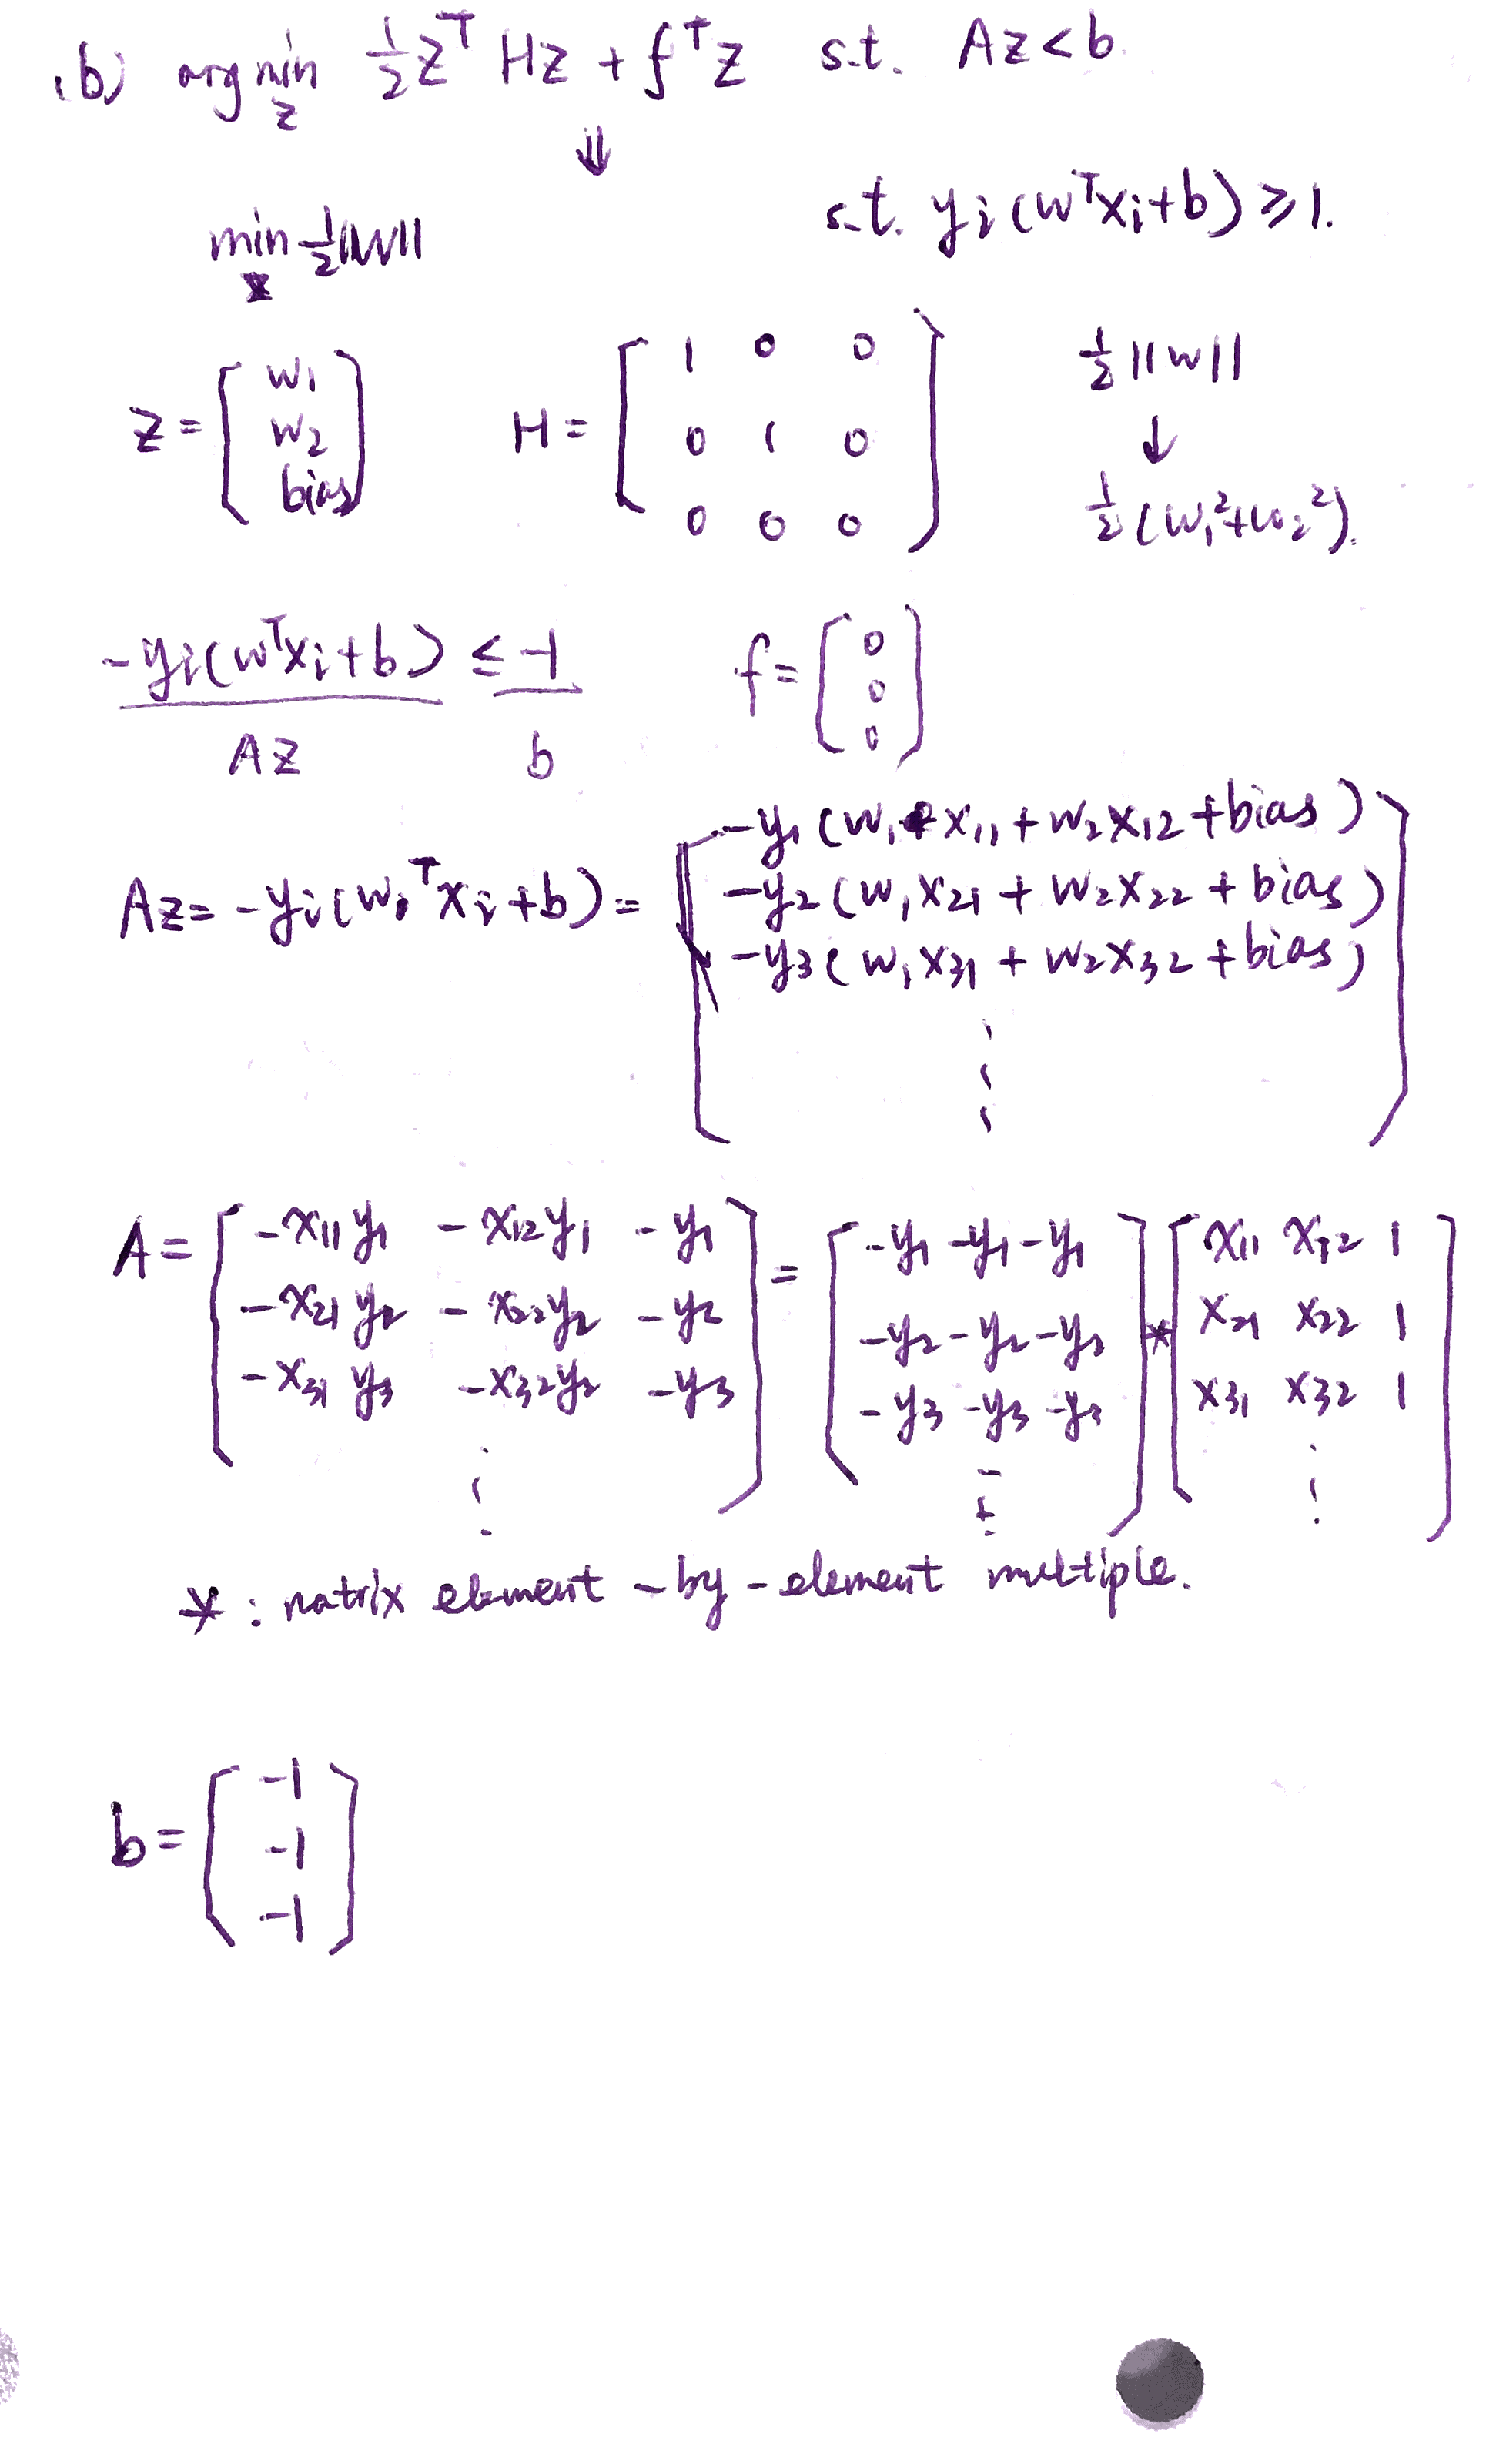 (b) arg min_z ½ z^T H z + f^T z s.t. Az < b.
⇓
min ½||W|| s.t. y_i (w^T x_i + b) ≥ 1.
z = [ w_1 ; w_2 ; bias ] H = [ 1 0 0 ; 0 1 0 ; 0 0 0 ] ½ ||w|| ↓ ½ (w_1^2 + w_2^2).
-y_i (w^T x_i + b) ≤ -1 f = [ 0 ; 0 ; 0 ]
Az b
Az = -y_i (w^T x_i + b) = [ -y_1 (w_1 x_11 + w_2 x_12 + bias)
-y_2 (w_1 x_21 + w_2 x_22 + bias)
-y_3 (w_1 x_31 + w_2 x_32 + bias)
⋮ ]
A = [ -x_11 y_1 -x_12 y_1 -y_1 ] = [ -y_1 -y_1 -y_1 ] * [ x_11 x_12 1 ]
-x_21 y_2 -x_22 y_2 -y_2 -y_2 -y_2 -y_2 x_21 x_22 1
-x_31 y_3 -x_32 y_2 -y_3 -y_3 -y_3 -y_3 x_31 x_32 1
⋮ ⋮ ⋮
* : matrix element-by-element multiple.
b = [ -1 ; -1 ; -1 ]